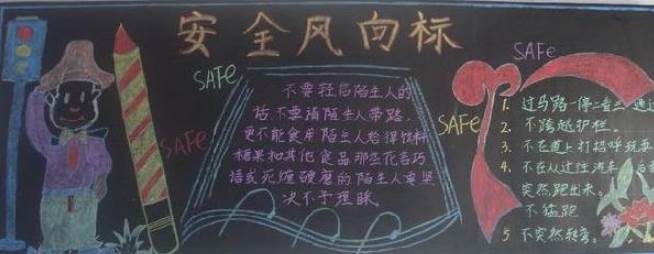 安全风向标
SAFe
SAFe
SAFe
SAFe
不要轻信陌生人的
话不要请陌生人带路,
更不能食用陌生人给得饮料
糖果和其他食品那些花名巧
语或死缠硬磨的陌生人要坚
决不予理睬。
1. 过马路一停二看三通过
2. 不跨越护栏。
3. 不在道上打招呼玩耍
4. 不在从过往汽车
突然跑出来。
不猛跑
5 不突然转弯。